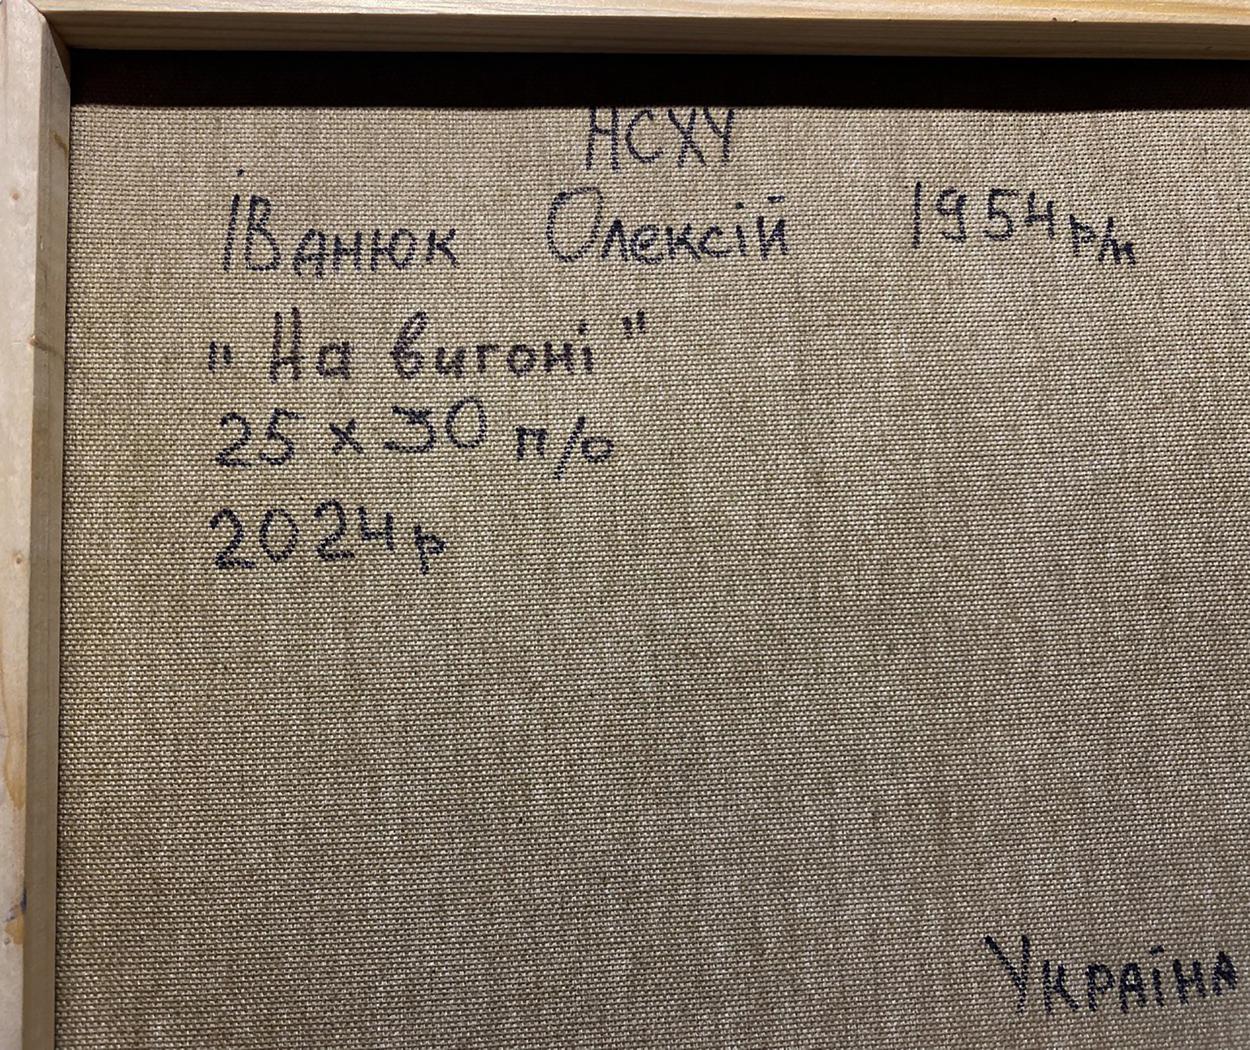 НСХУ
Іванюк Олексій 1954 р/н
"На вигоні"
25 х 30 п/о
2024р
Україна